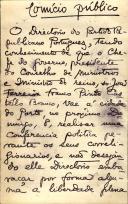 Comício público
O Directorio do Partido Re-
publicano Portuguez, tendo
conhecimento de que o Che-
fe do governo, presidente
do Conselho de Ministros
e ministro do reino, sr. João
Ferreira Franco Pinto Cas-
tello Branco, vae á cidade
do Porto, no proximo
dia 8, realisar uma
Conferencia politica pe-
rante os seus correli-
gionarios, e não desejan-
do elle Directorio emba-
raçar por forma algu-
ma a liberdade plena